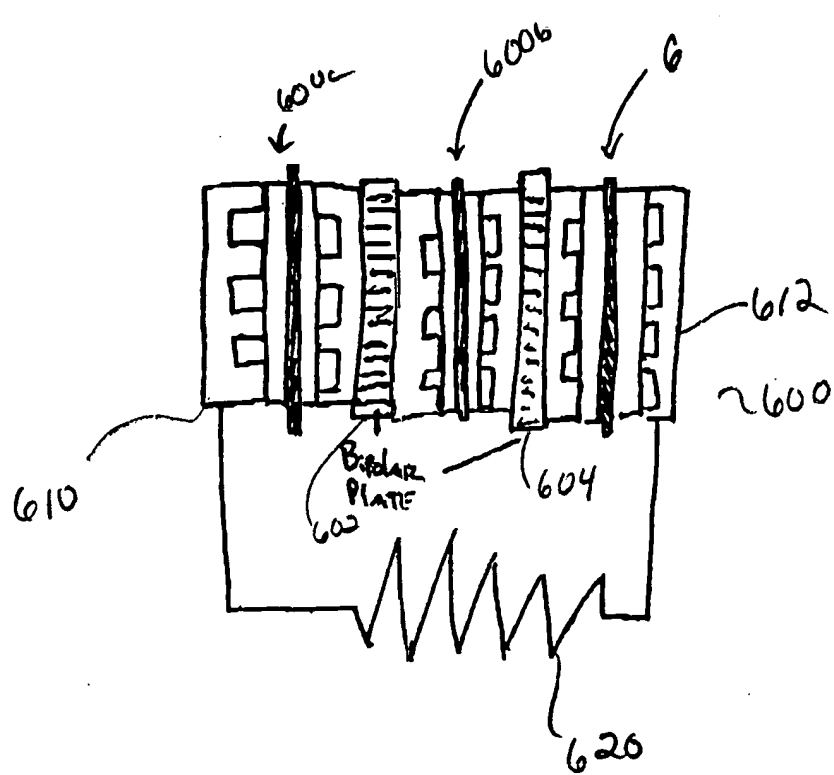 600c
600b
6
612
600
610
Bipolar
Plate
602
604
620